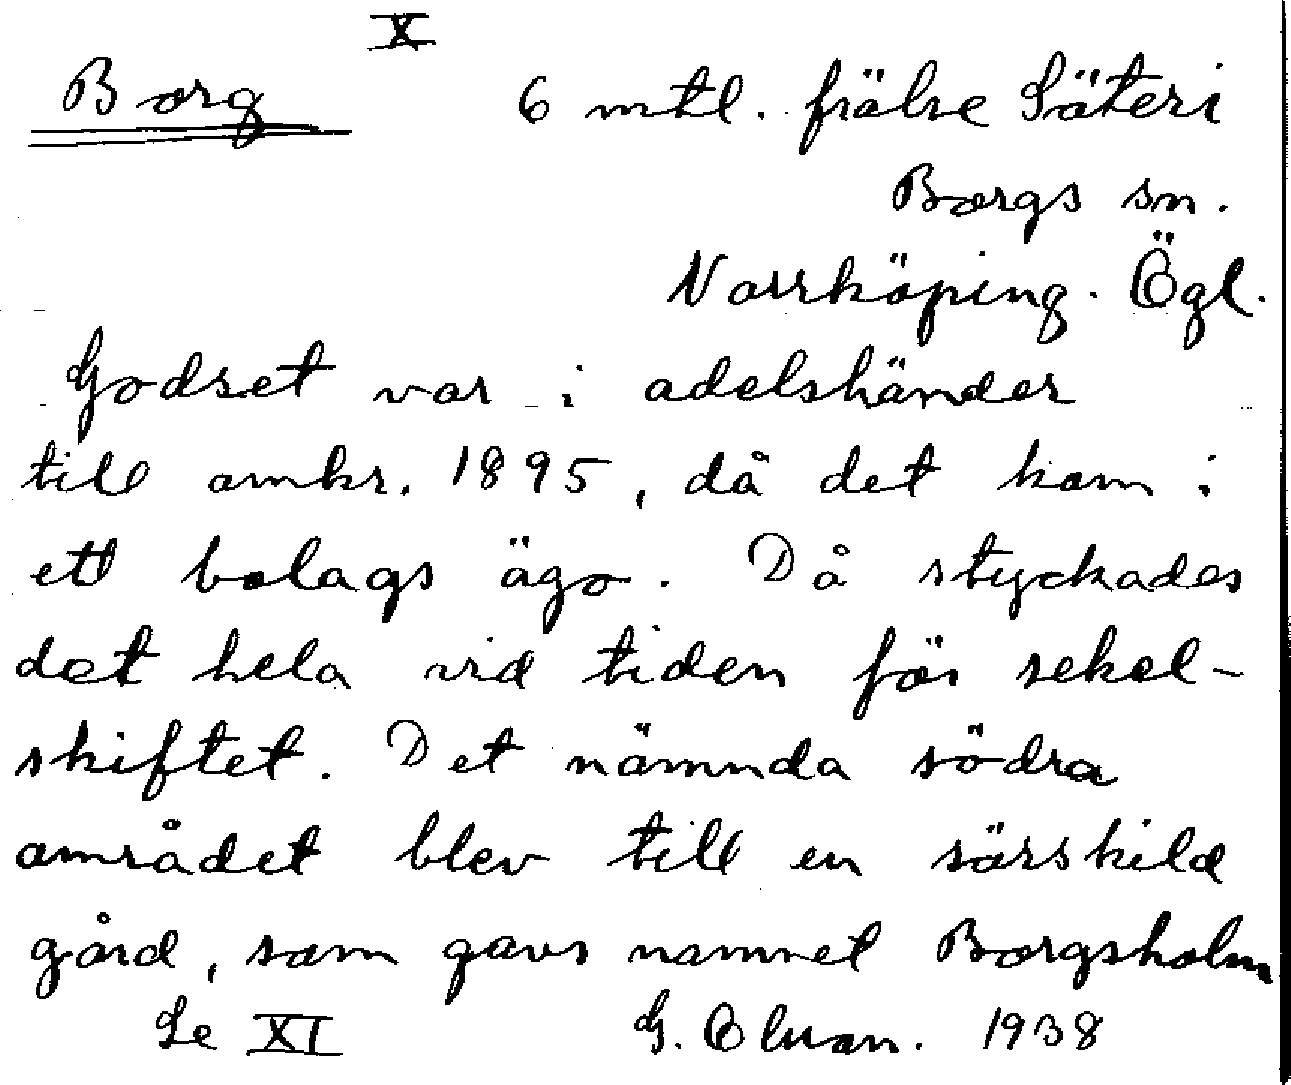 X
Borg 6 mtl. frälse Säteri
Borgs sn.
Norrköping. Ögl.
Godset var i adelshänder
till omkr. 1895, då det kom i
ett bolags ägo. Då styckades
det hela vid tiden för sekel-
skiftet. Det nämnda södra
området blev till en särskild
gård, som gavs namnet Borgsholm
Se XI G. 1938